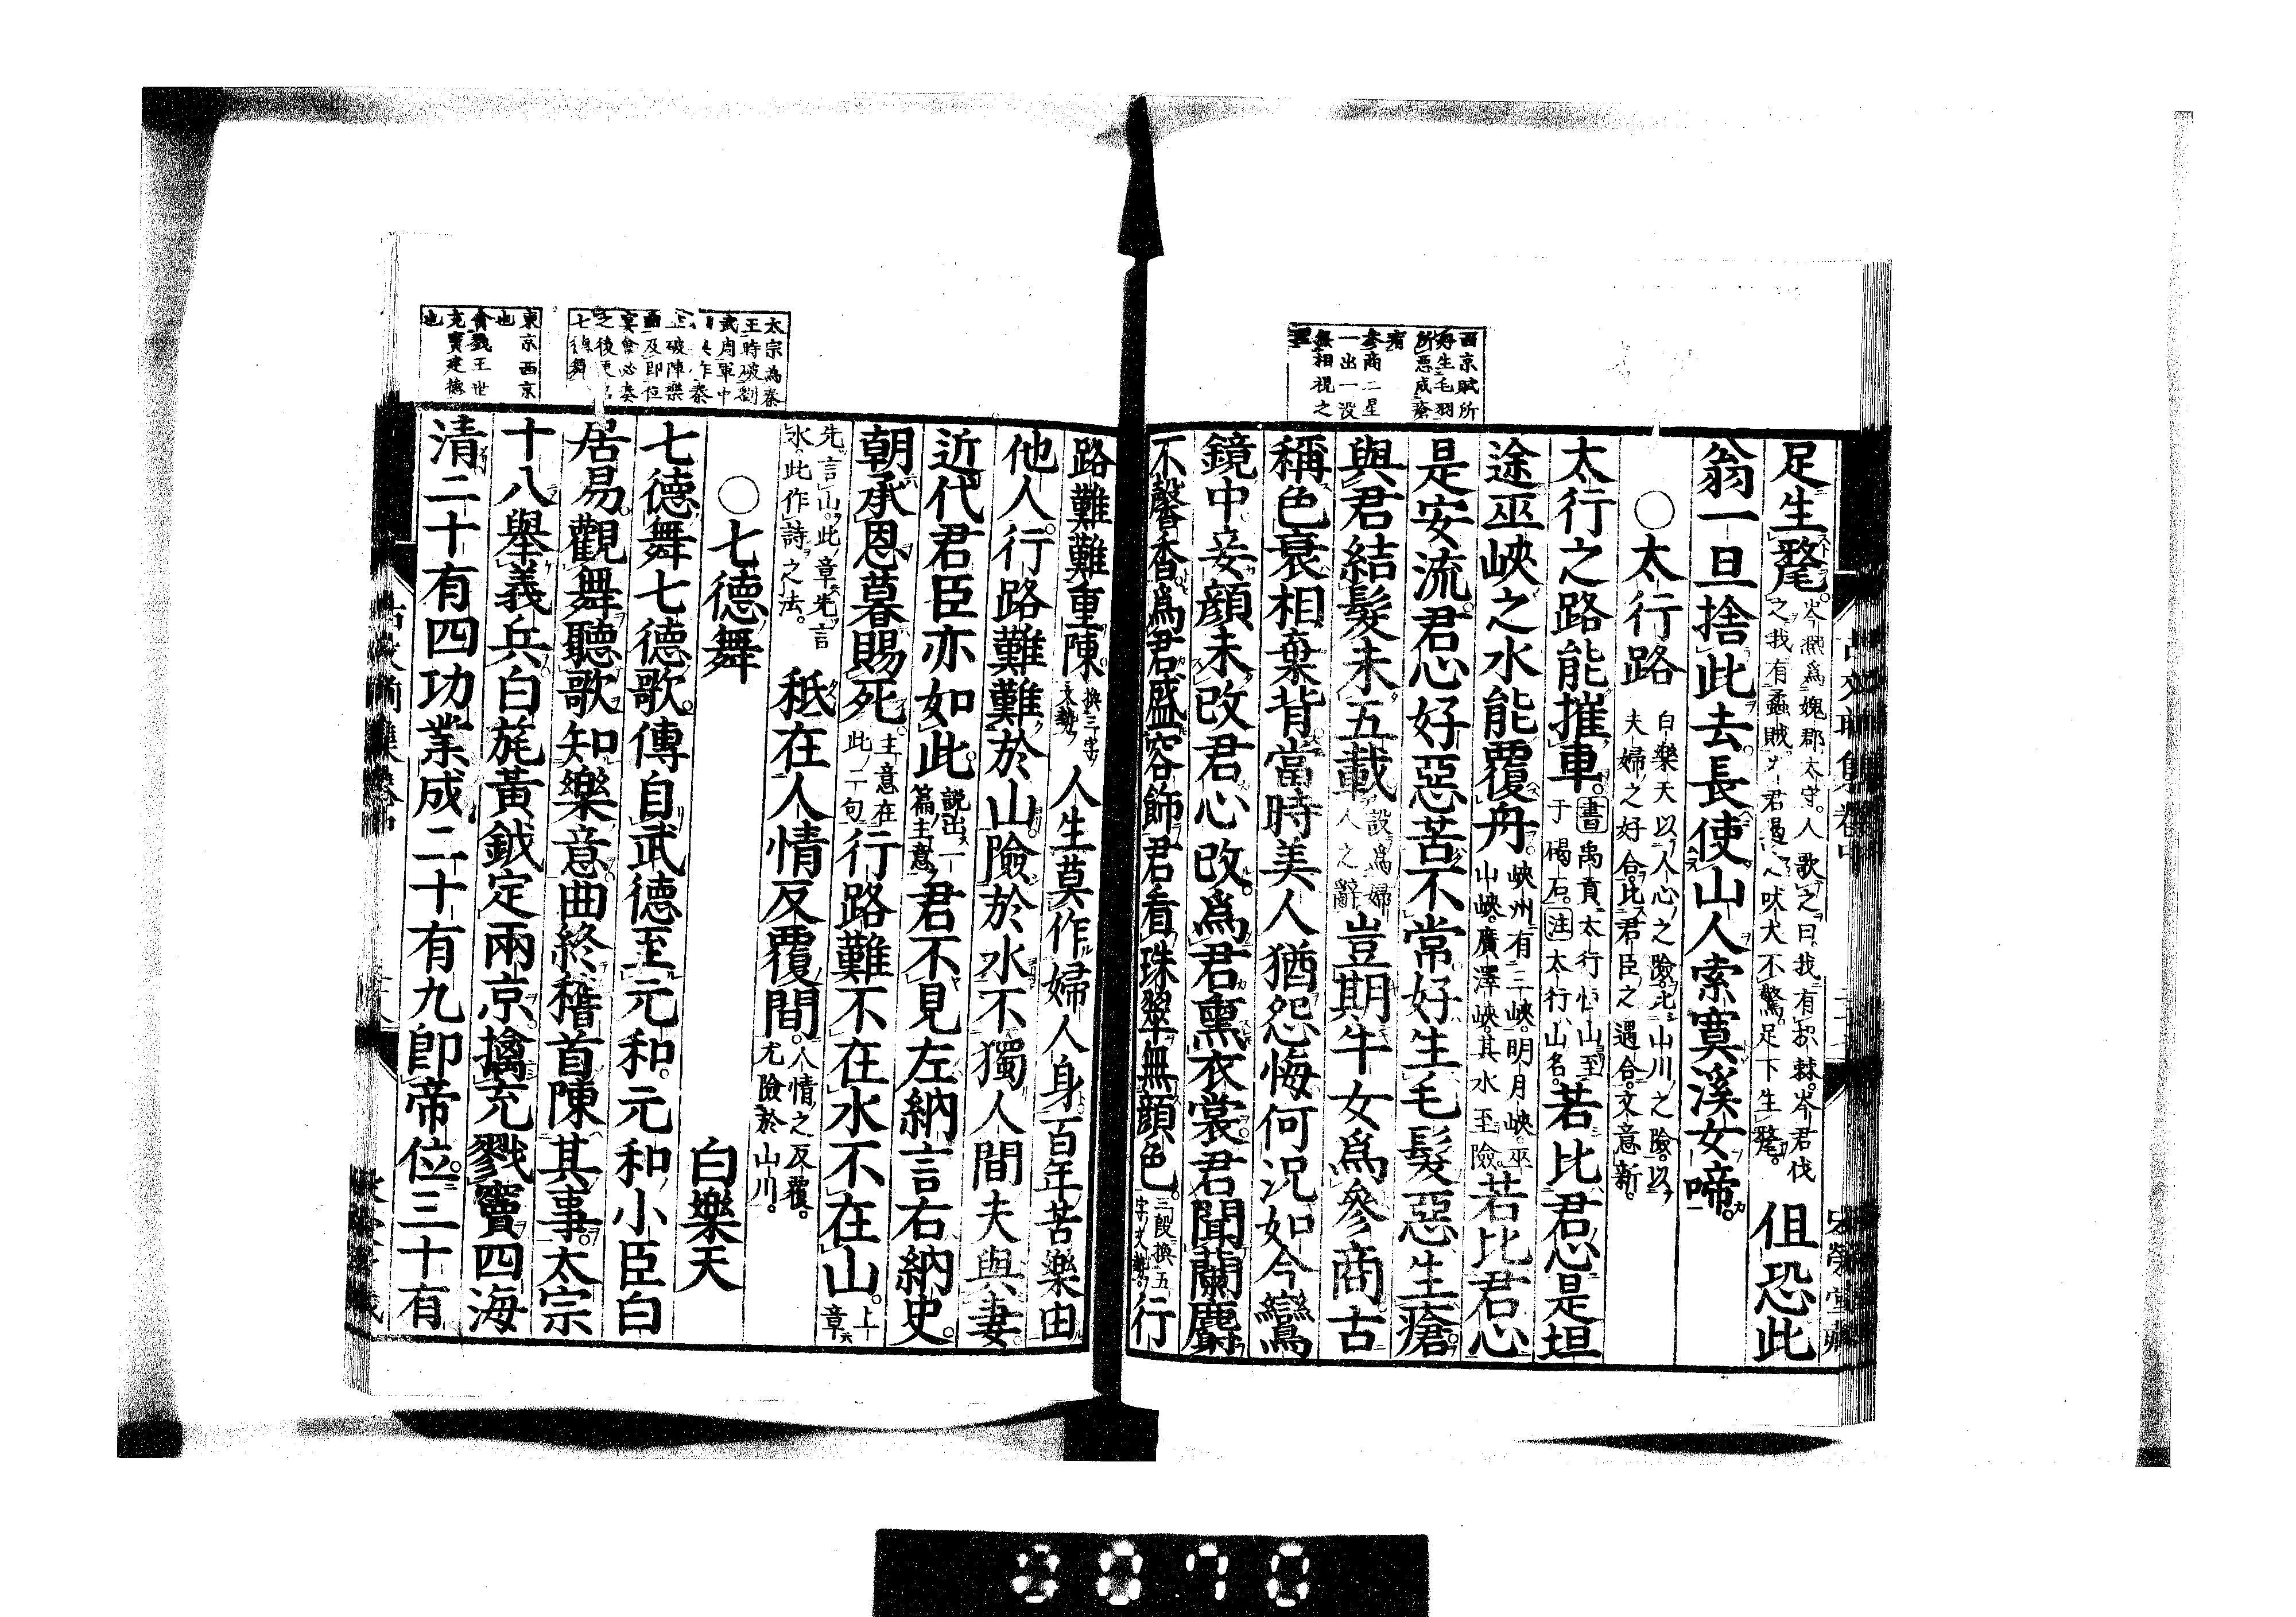 西京賦所
好生毛羽
所惡成瘡
痏
參商二星
一出一没
無相視之
理
足生氂。岑熙爲魏郡太守。人歌之曰我有枳棘。岑君伐
之我有蟊賊。岑君遏之吠犬不驚。足下生氂。
但恐此
翁一旦捨此去。長使山人索寞溪女啼。
○太行路
白樂天以人心之險。比山川之險。以
夫婦之好合。比君臣之遇合。文意新。
太行之路能摧車。書禹貢太行恒山至
于碣石。注太行山名。
若比君心是坦
途巫峽之水能覆舟。峽州有三峽。明月峽。巫
山峽。廣澤峽。其水至險。
若比君心
是安流。君心好惡苦不常好生毛髮惡生瘡。
與君結髮未五載設爲婦
人之辭
豈期牛女爲參商。古
稱色衰相棄背當時美人猶怨悔何況如今鸞
鏡中妾顔未改君心改。爲君熏衣裳。君聞蘭麝
不馨香爲君盛容飾君看珠翠無顔色。三段換五
字文勢。
行
路難難重陳換三字
文勢
人生莫作婦人身百年苦樂由
他人。行路難難於山險於水不獨人間夫與妻。
近代君臣亦如此。説出一
篇主意
君不見左納言右納史。
朝承恩暮賜死主意在
此二句
行路難不在水不在山。上
章
先言山。此章先言
水。此作詩之法。
秖在人情反覆間。人情之反覆。
尤險於山川。
○七德舞
白樂天
七德舞七德歌。傳自武德至元和。元和小臣白
居易。觀舞聽歌知樂意曲終稽首陳其事。太宗
十八舉義兵白旄黃鉞定兩京。擒充戮竇四海
清二十有四功業成二十有九即帝位。三十有
太宗爲秦
王時破劉
武周軍中
破陳樂
及即位
宴會必奏
之後更名
七德舞
東京西京
也
禽戮王世
充竇建德
也